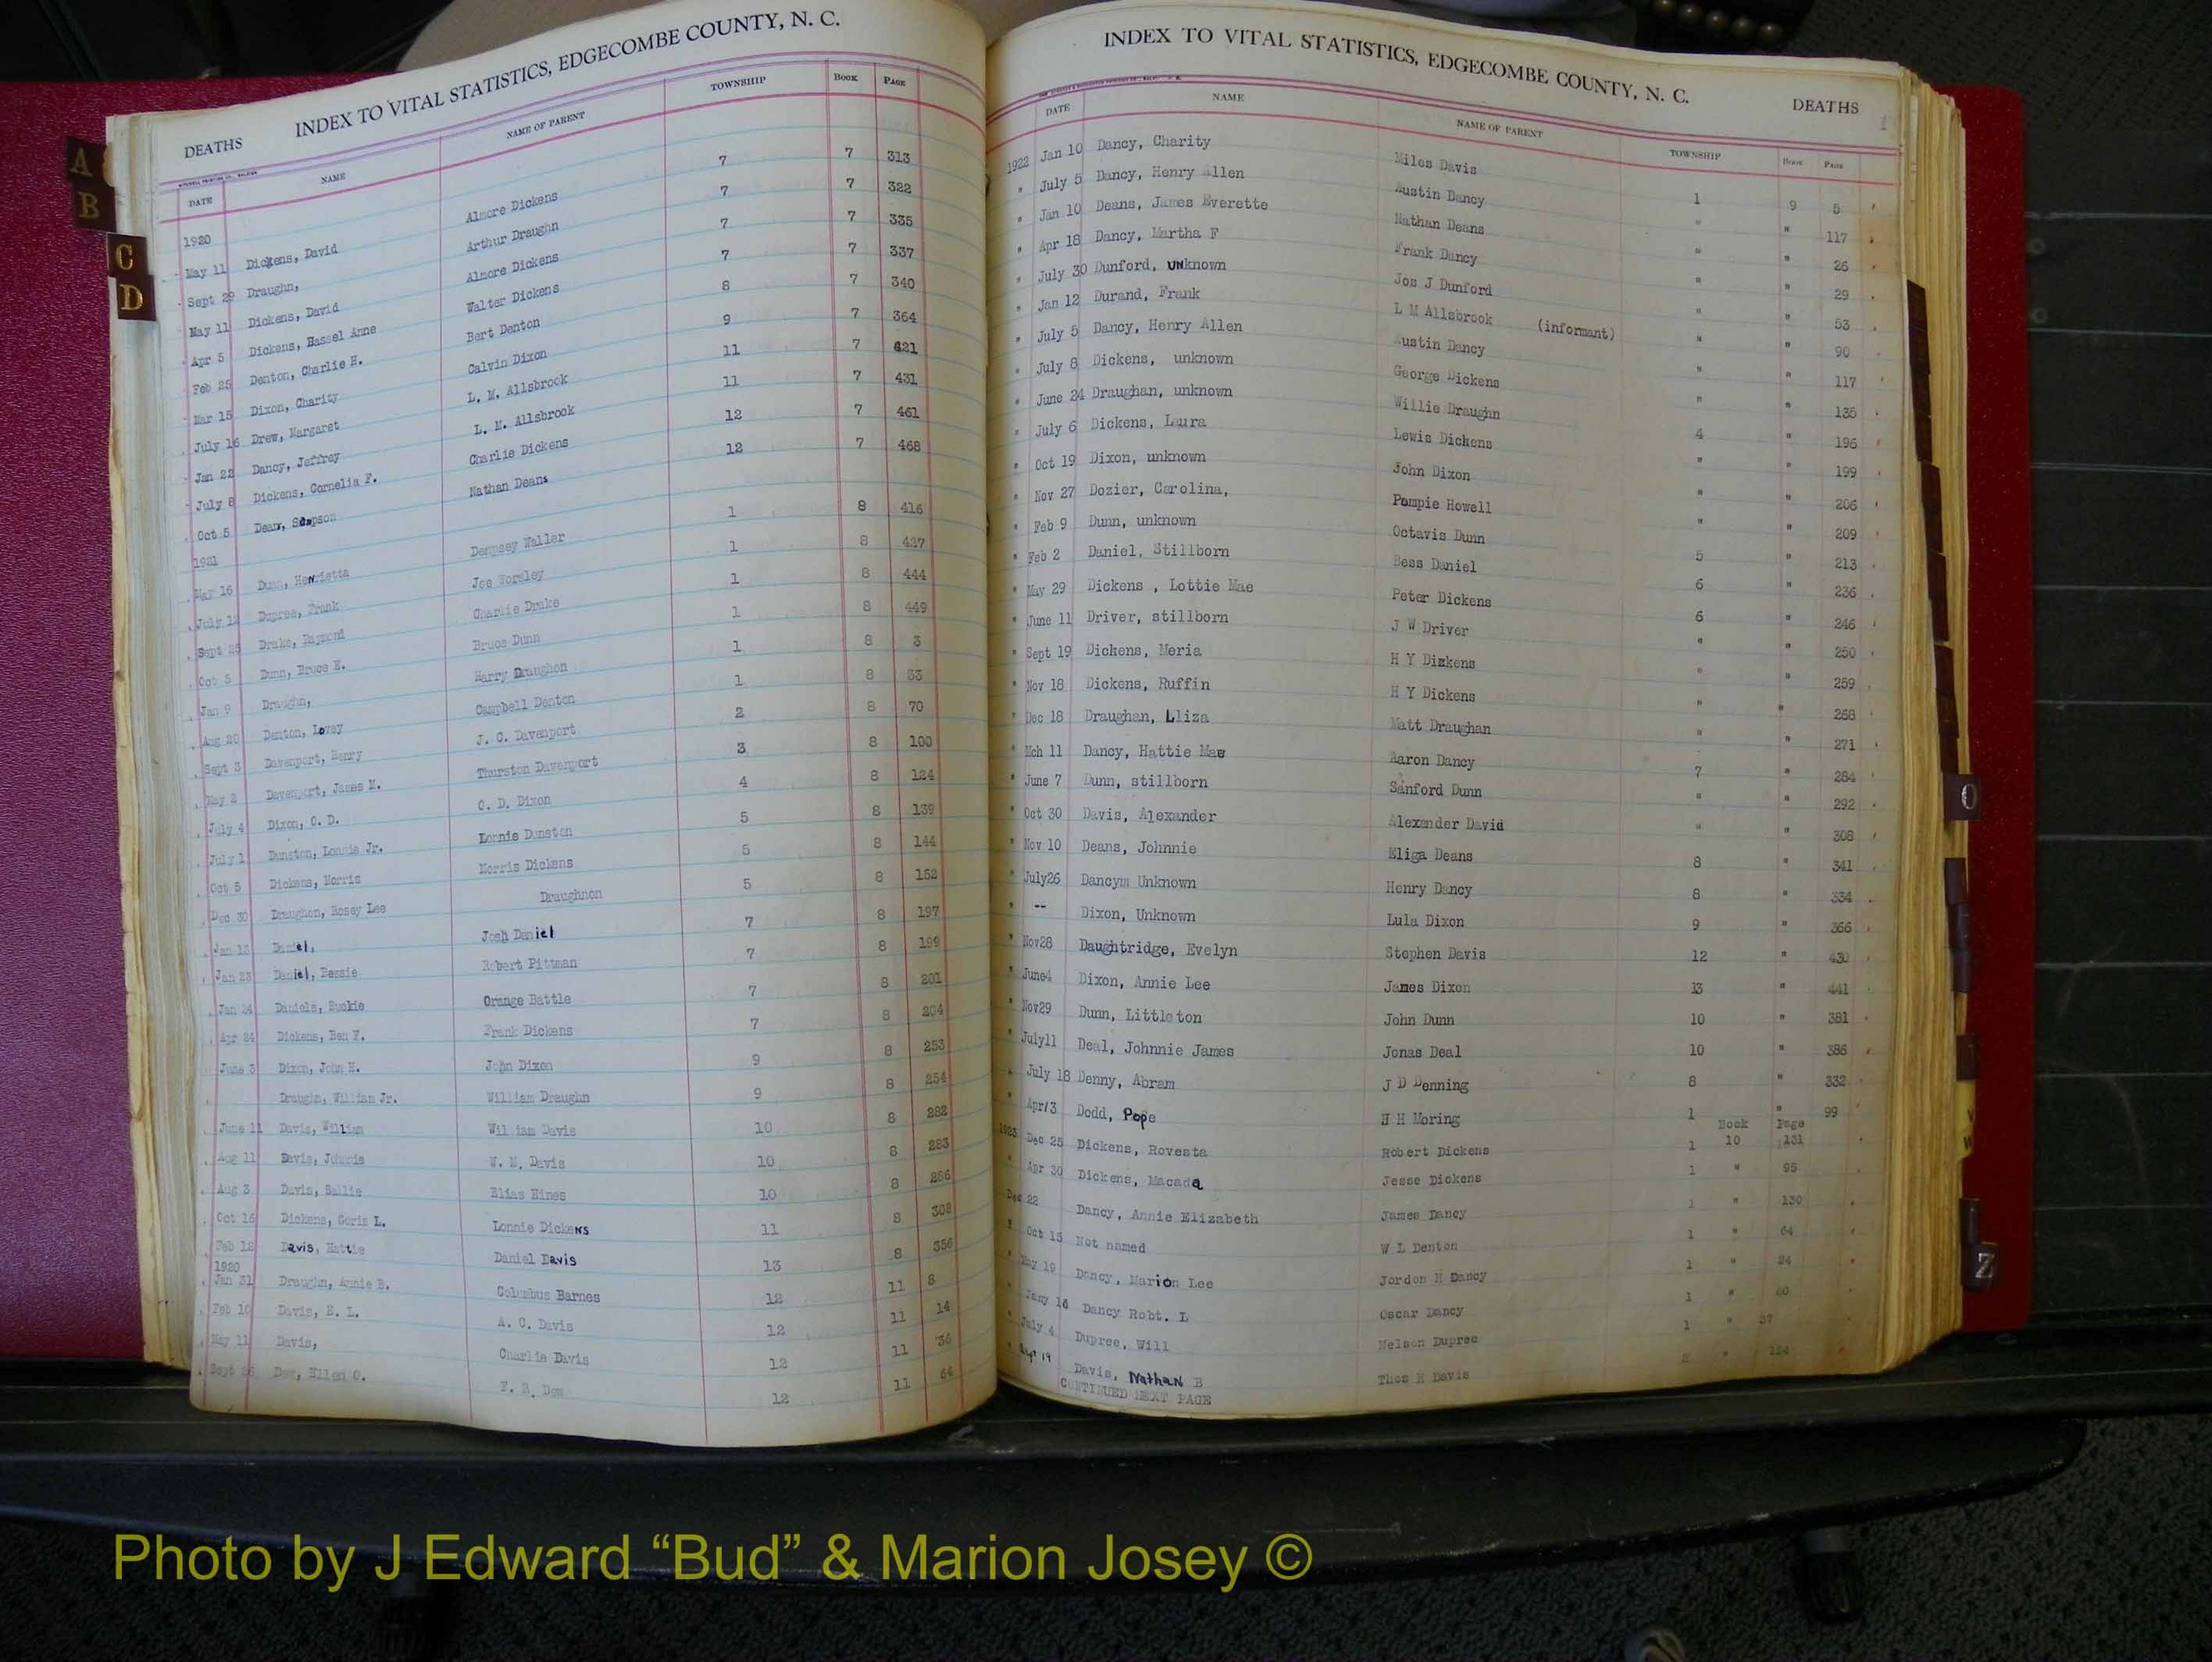 A
B
C
D
INDEX TO VITAL STATISTICS, EDGECOMBE COUNTY, N. C.
DEATHS
DATE NAME NAME OF PARENT TOWNSHIP BOOK PAGE
1920
May 11 Dickens, David Almore Dickens 7 7 313
Sept 29 Draughn, Arthur Draughn 7 7 322
May 11 Dickens, David Almore Dickens 7 7 335
Apr 5 Dickens, Hassel Anne Walter Dickens 7 7 337
Feb 25 Denton, Charlie H. Bert Denton 8 7 340
Mar 15 Dixon, Charity Calvin Dixon 9 7 364
July 16 Drew, Margaret L. M. Allsbrook 11 7 421
Jan 22 Dancy, Jeffrey L. M. Allsbrook 11 7 431
July 8 Dickens, Cornelia F. Charlie Dickens 12 7 461
Oct 5 Dean, Sampson Nathan Deans 12 7 468
1921
May 16 Dunn, Henrietta Dempsey Waller 1 8 416
July 12 Dupree, Frank Joe Worsley 1 8 427
Sept 25 Drake, Raymond Charlie Drake 1 8 444
Oct 5 Dunn, Bruce E. Bruce Dunn 1 8 449
Jan 9 Draughn, Harry Draughon 1 8 3
Aug 20 Denton, Lovey Campbell Denton 1 8 33
Sept 3 Davenport, Henry J. C. Davenport 2 8 70
May 2 Davenport, James M. Thurston Davenport 3 8 100
July 4 Dixon, C. D. C. D. Dixon 4 8 124
July 1 Dunston, Lonnie Jr. Lonnie Dunston 5 8 139
Oct 5 Dickens, Norris Norris Dickens 5 8 144
Dec 30 Draughon, Rosey Lee Draughnon 5 8 152
Jan 13 Daniel, Josh Daniel 7 8 197
Jan 23 Daniel, Bessie Robert Pittman 7 8 199
Jan 24 Daniels, Suckie Orange Battle 7 8 201
Apr 24 Dickens, Ben F. Frank Dickens 7 8 204
June 3 Dixon, John H. John Dixon 9 8 253
Draughn, William Jr. William Draughn 9 8 254
June 11 Davis, William William Davis 10 8 282
Aug 11 Davis, Johnnie W. M. Davis 10 8 283
Aug 3 Davis, Sallie Elias Hines 10 8 286
Oct 16 Dickens, Goris L. Lonnie Dickens 11 8 308
Feb 18 Davis, Hattie Daniel Davis 13 8 356
1920
Jan 31 Draughn, Annie B. Columbus Barnes 12 11 8
Feb 10 Davis, E. L. A. C. Davis 12 11 14
May 11 Davis, Charlie Davis 12 11 36
Sept 26 Dew, Ellen O. F. R. Dew 12 11 64
INDEX TO VITAL STATISTICS, EDGECOMBE COUNTY, N. C.
DEATHS
DATE NAME NAME OF PARENT TOWNSHIP BOOK PAGE
1922 Jan 10 Dancy, Charity Miles Davis 1 9 5
" July 5 Dancy, Henry Allen Austin Dancy " " 117
" Jan 10 Deans, James Everette Nathan Deans " " 26
" Apr 18 Dancy, Martha F Frank Dancy " " 29
" July 30 Dunford, UNknown Jos J Dunford " " 53
" Jan 12 Durand, Frank L M Allsbrook (informant) " " 90
" July 5 Dancy, Henry Allen Austin Dancy " " 117
" July 8 Dickens, unknown George Dickens " " 135
" June 24 Draughan, unknown Willie Draughn 4 " 196
" July 6 Dickens, Laura Lewis Dickens " " 199
" Oct 19 Dixon, unknown John Dixon " " 206
" Nov 27 Dozier, Carolina, Pompie Howell " " 209
" Feb 9 Dunn, unknown Octavis Dunn 5 " 213
" Feb 2 Daniel, Stillborn Bess Daniel 6 " 236
" May 29 Dickens , Lottie Mae Peter Dickens 6 " 246
" June 11 Driver, stillborn J W Driver " " 250
" Sept 19 Dickens, Meria H Y Dizkens " " 259
" Nov 18 Dickens, Ruffin H Y Dickens " " 268
" Dec 18 Draughan, Lliza Matt Draughan " " 271
" Mch 11 Dancy, Hattie Mae Aaron Dancy 7 " 284
" June 7 Dunn, stillborn Sanford Dunn " " 292
" Oct 30 Davis, Alexander Alexander David " " 308
" Nov 10 Deans, Johnnie Eliga Deans 8 " 341
" July26 Dancym Unknown Henry Dancy 8 " 334
" -- Dixon, Unknown Lula Dixon 9 " 366
" Nov28 Daughtridge, Evelyn Stephen Davis 12 " 430
" June4 Dixon, Annie Lee James Dixon 13 " 441
" Nov29 Dunn, Littleton John Dunn 10 " 381
" July11 Deal, Johnnie James Jonas Deal 10 " 386
" July 18 Denny, Abram J D Denning 8 " 332
" Apr13 Dodd, Pope H H Moring 1 " 99
Book Page
1923 Dec 25 Dickens, Rovesta Robert Dickens 1 10 131
" Apr 30 Dickens, Macada Jesse Dickens 1 " 95
Dec 22 Dancy, Annie Elizabeth James Dancy 1 " 130
" Oct 15 Not named W L Denton 1 " 64
" May 19 Dancy, Marion Lee Jordon H Dancy 1 " 24
" Jany 16 Dancy Robt. L Oscar Dancy 1 " 60
" July 4 Dupree, Will Nelson Dupree 1 " 37
" 19 Davis, Nathan B Thos H Davis 2 " 124
CONTINUED NEXT PAGE
O
V
W
Z
Photo by J Edward “Bud” & Marion Josey ©